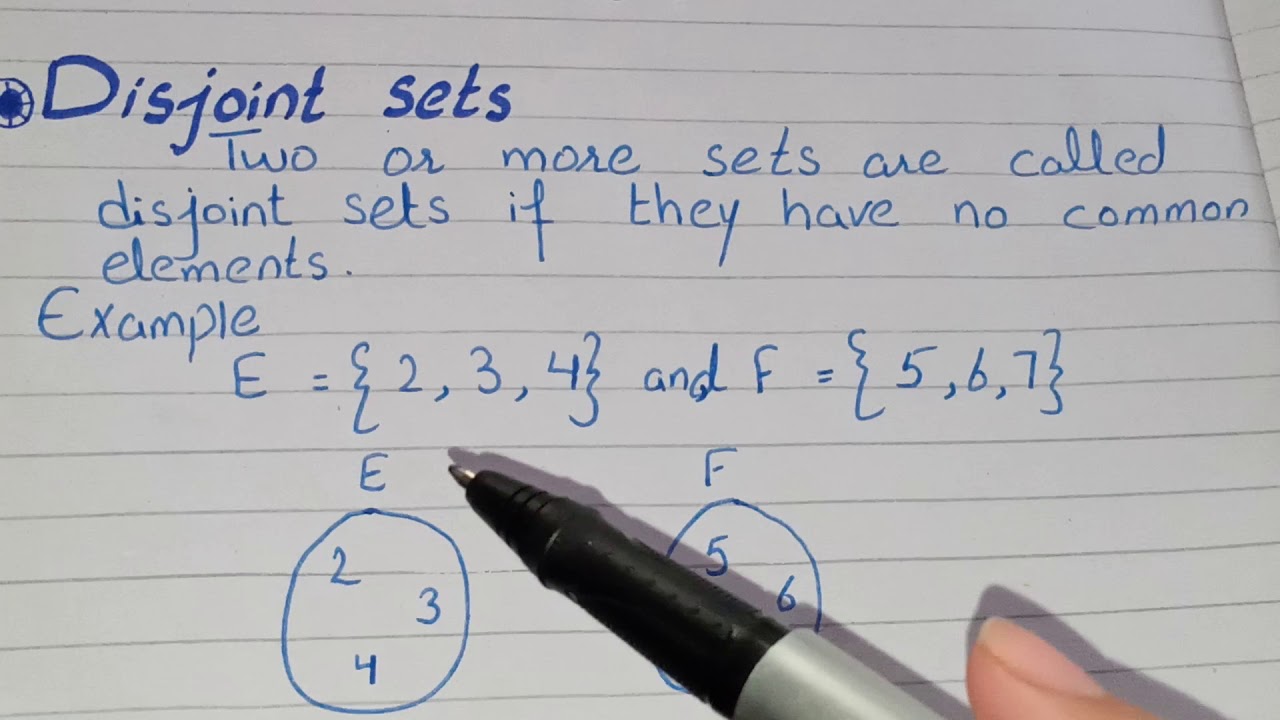 Disjoint sets
Two or more sets are called
disjoint sets if they have no common
elements.
Example
E = {2, 3, 4} and F = {5, 6, 7}
E F
2 5
3 6
4